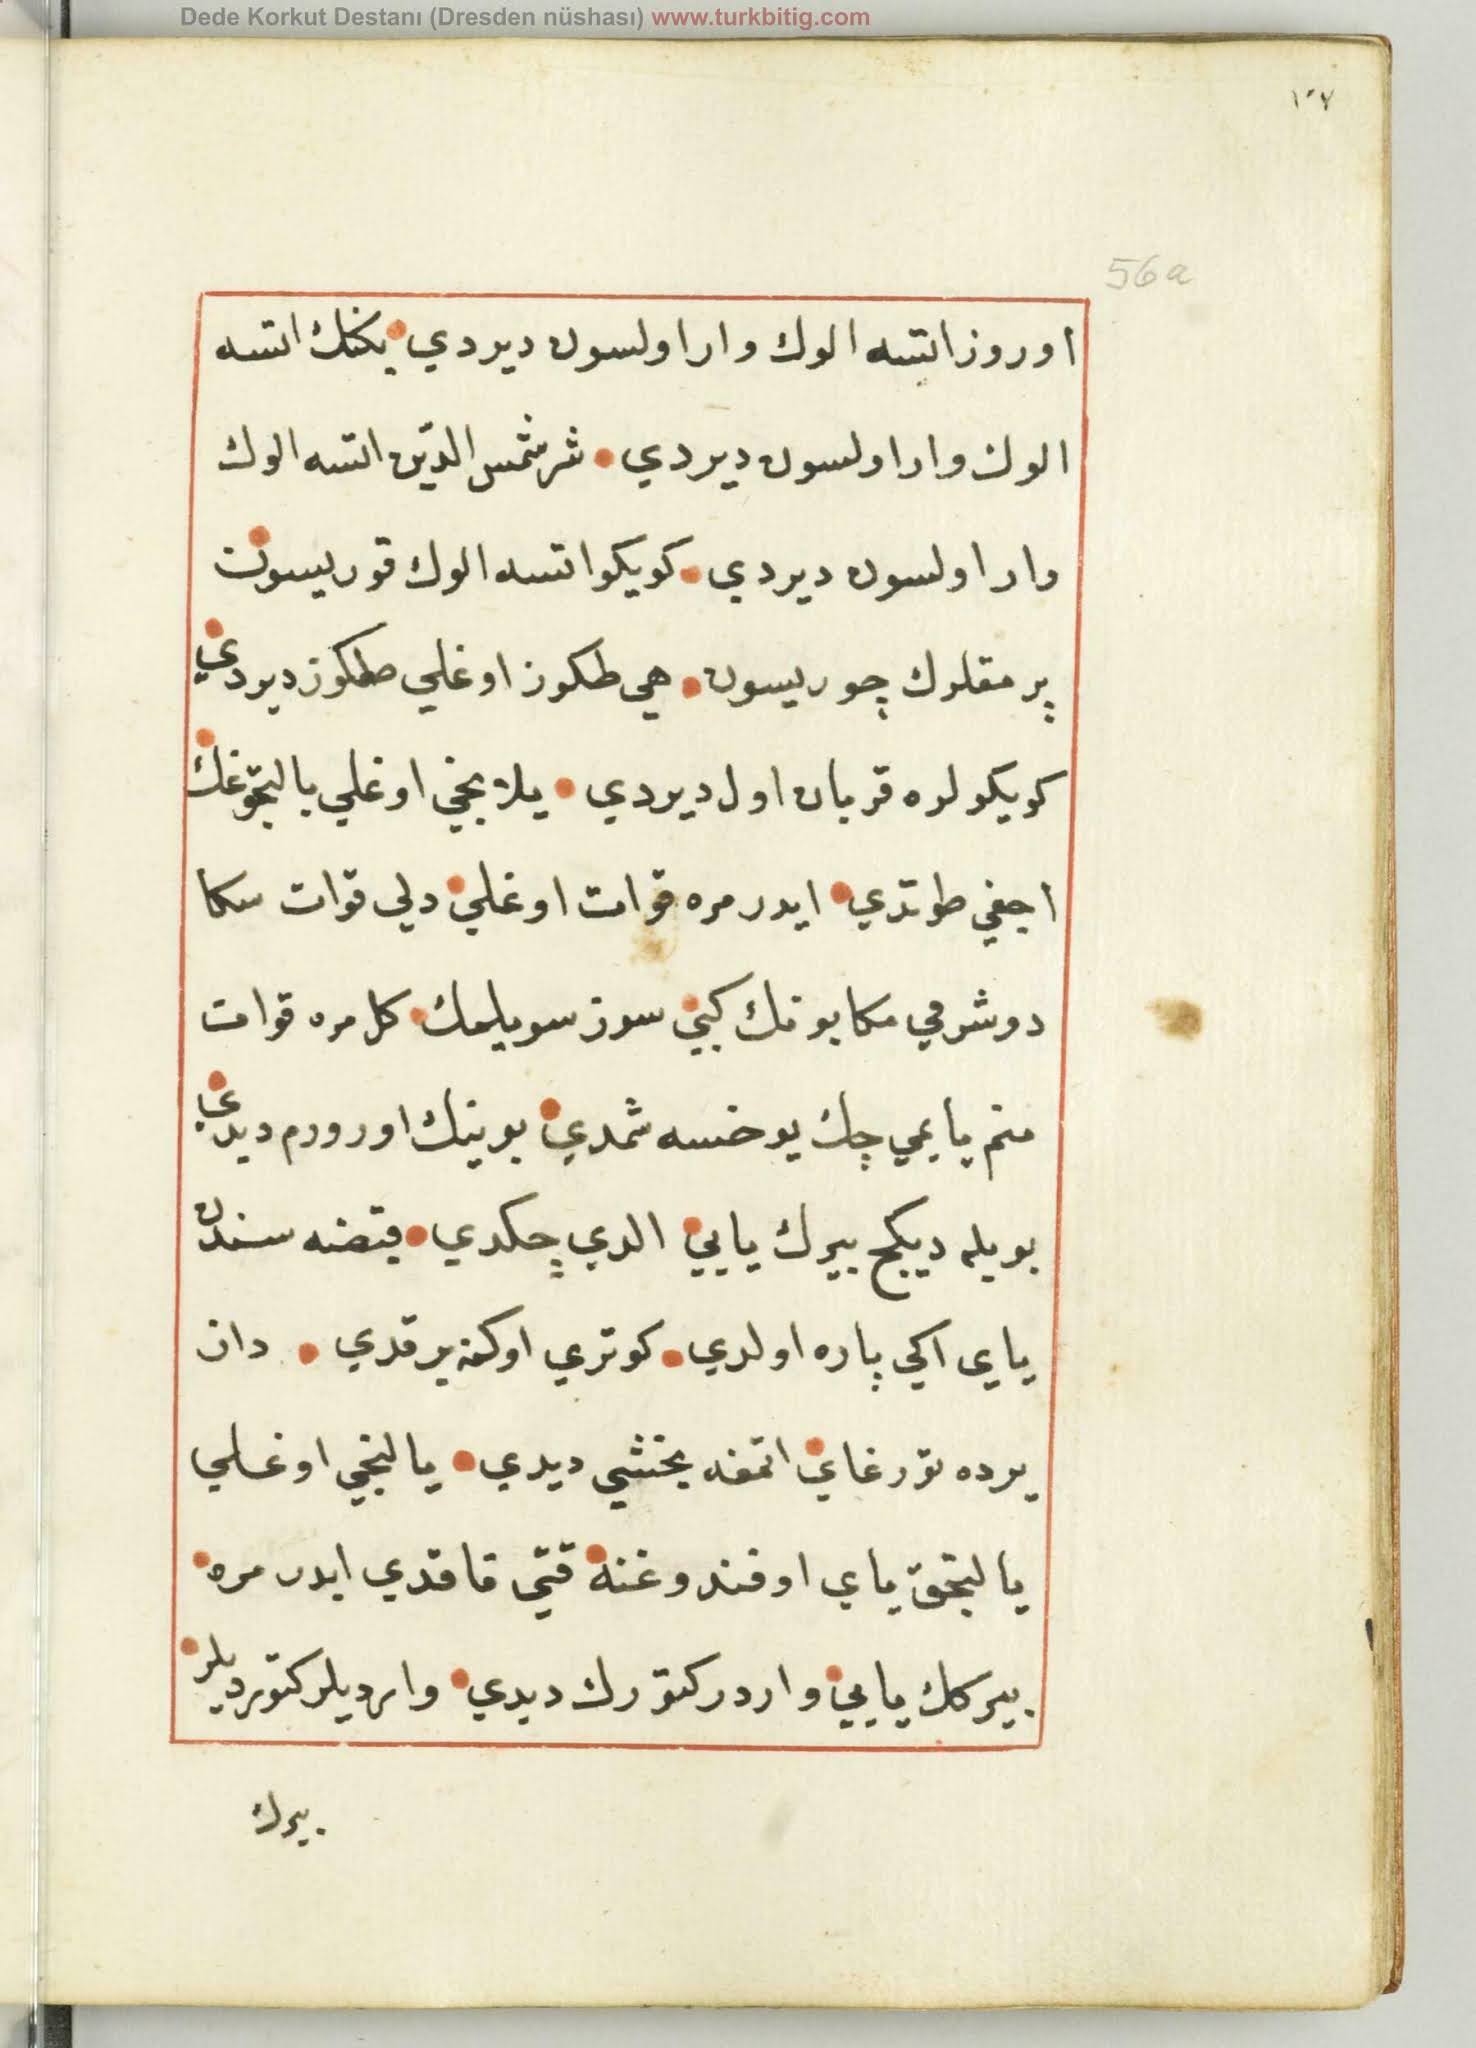 Dede Korkut Destanı (Dresden nüshası) www.turkbitig.com
١٠٧
56a
اوروز اتسه الوك وار اولسون ديردي يكنك اتسه
الوك وار اولسون ديردي شر شمس الدّين اتسه الوك
وار اولسون ديردي كويكو اتسه الوك قوريسون
پرمقلرك چوريسون هي طكوز اوغلي طكوز ديردي
كويكولره قربان اول ديردي يلانجي اوغلي يالنجوغك
اجغي طوتدي ايدر مره قوات اوغلي دلي قوات سكا
دوشرمي مكا بونك كبي سوز سويلمك كل مره قوات
منم يايمي چك يوخسه شمدي بوينك اورورم ديدي
بويله ديكج بيرك يايي الدي چكدي قبضه سندن
ياي اكي پاره اولدي كوتردي اوكنه برقدي دان
يرده تورغاي اتمغه يخشي ديدي يالنجي اوغلي
يالنجق ياي اوفندوغنه قتي قاقدي ايدر مره
بيركك يايي واردر كتورك ديدي وارديلر كتورديلر
بيرك